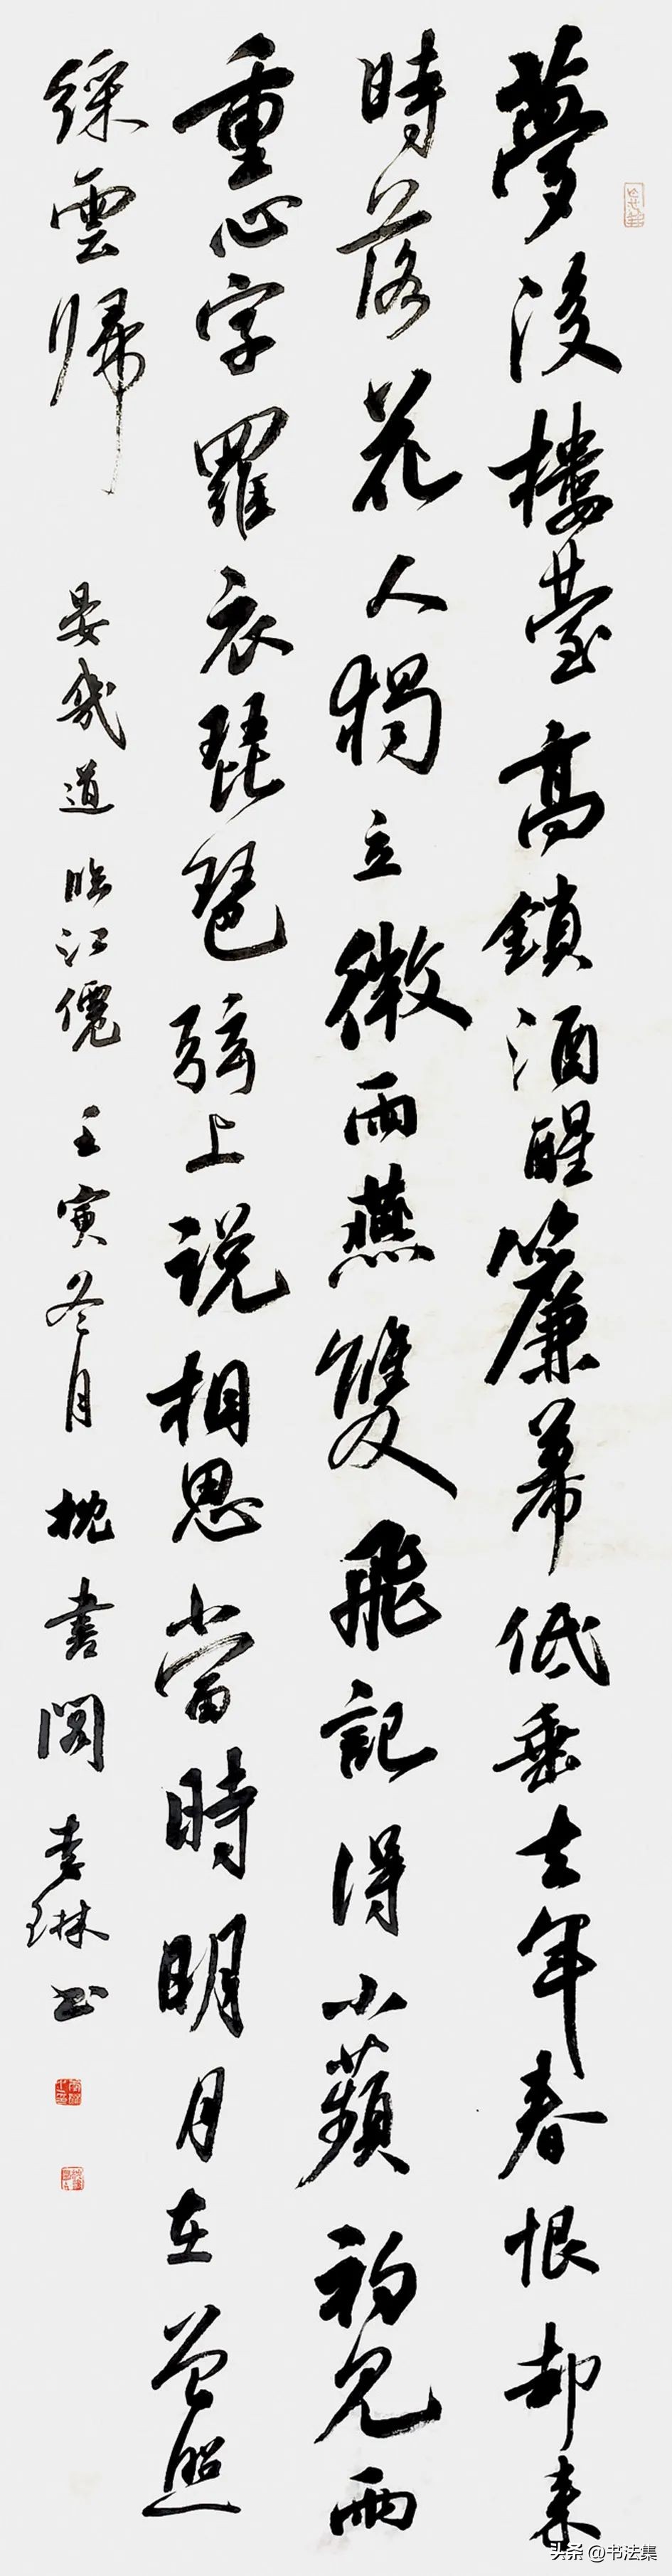 夢後樓臺高鎖酒醒簾幕低垂去年春恨却來
時落花人獨立微雨燕雙飛記得小蘋初見兩
重心字羅衣琵琶弦上说相思當時明月在曾照
綵雲歸 晏幾道臨江僊 壬寅冬月 枕書閣 李琳书
头条 @书法集